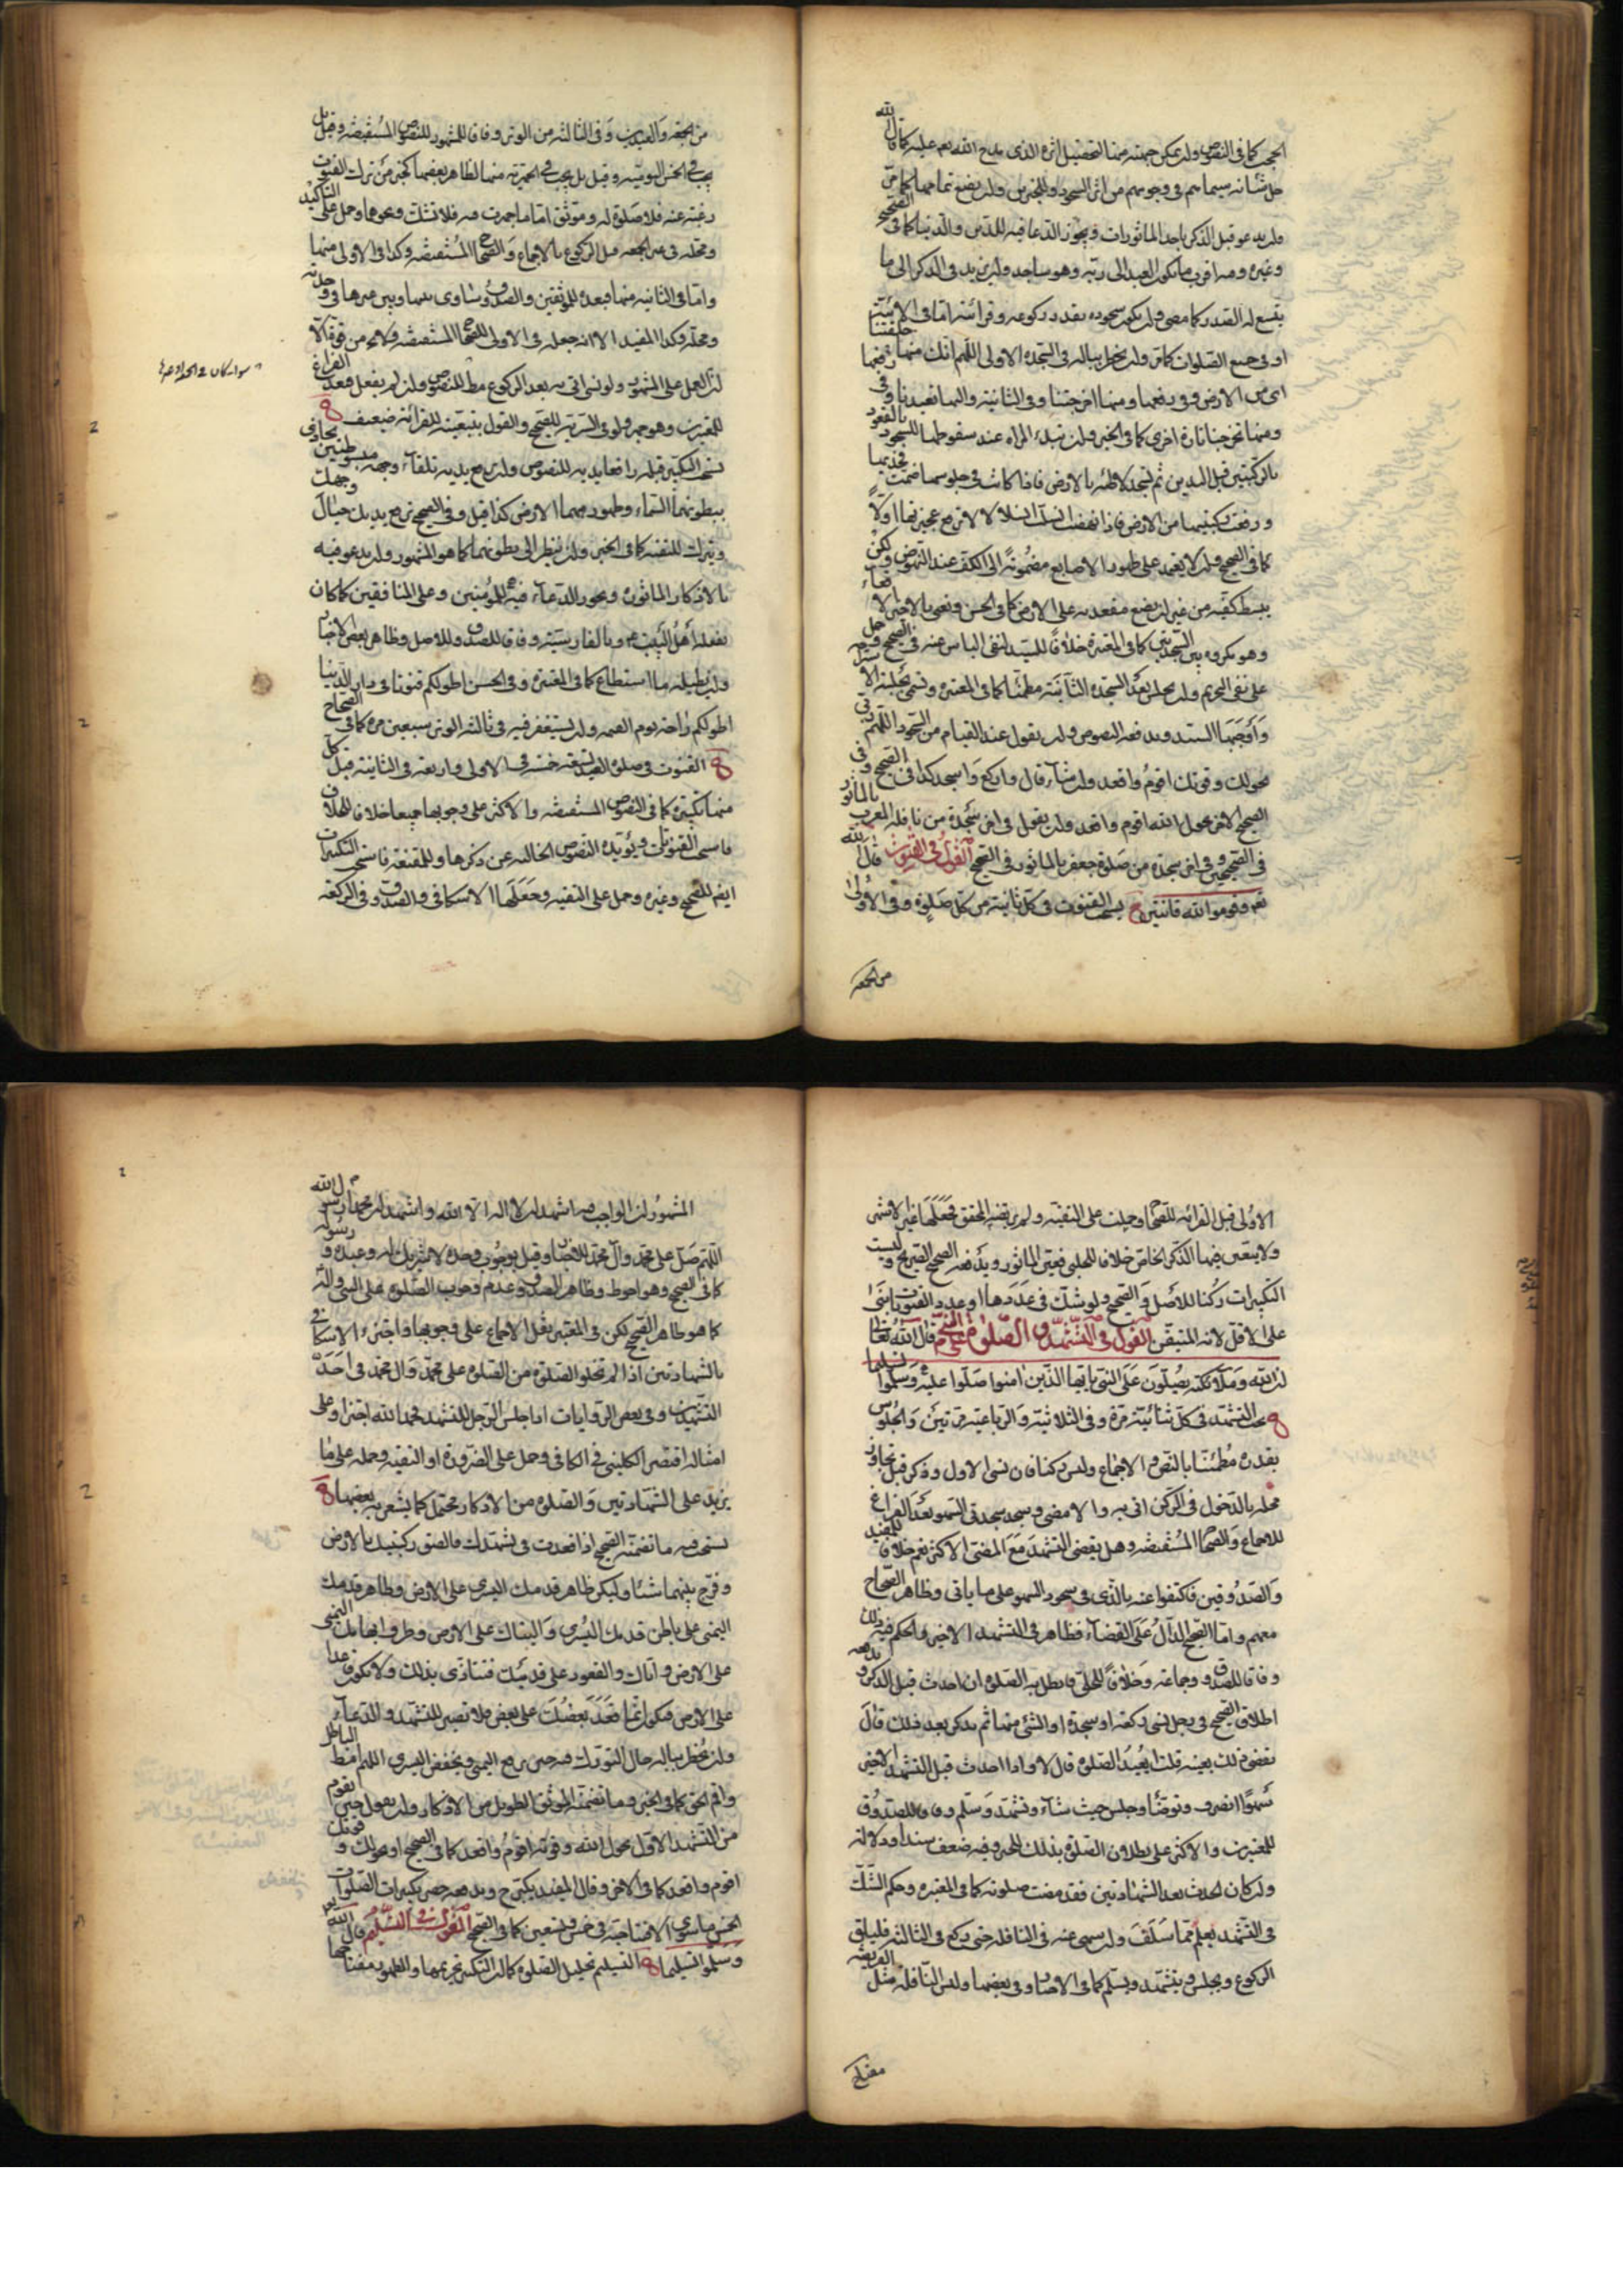 الحجب كما فى النصوص وان يمكن جبهته منها لتحصيل اثره الذى مدح الله به عليه كما قال الله
جل شانه سيماهم فى وجوههم من اثر السجود وللخبرين وان يضع تمامها كما مر
وان يدعو قبل الذكر باحد الماثورات ويجوز الدعا فيه للدين والدنيا كما فى الصحيح
وغيره وهو اقرب ما يكون العبد الى ربه وهو ساجد وان يزيد فى الذكر الى ما
يتسع له الصدر كما مضى وان يكون سجوده بقدر ركوعه وقرائته اما فى الاثنتين
او فى جميع الصلوات كما مر وان يخطر بباله فى السجدة الاولى اللهم انك منها خلقتنا
اى من الارض وفى رفعها ومنها اخرجتنا وفى الثانية واليها تعيدنا وفى رفعها
ومنها تخرجنا تارة اخرى كما فى الخبر وان تبدء المراه عند سقوطها للسجود بالقعود
بالركبتين قبل اليدين ثم تسجد لاطئه بالارض فاذا كانت فى جلوسها ضمت فخذيها
ورفعت ركبتيها من الارض فاذا نهضت انسلت انسلالا لا ترفع عجيزتها اولا
كما فى الصحيح وان لا يعتمد على ظهور الاصابع مضمومة الى الكف عند النهوض ولكن
يبسط كفيه من غير ان يضع مقعدته على الارض كما فى الحسن
وهو مكروه بين السجدتين كما فى المعتبرة خلافا للسيد لنفى الباس عنه فى الصحيح
على نفى التحريم وان يجلس بعد السجدة الثانية مطمئنا كما فى المعتبرة وتسمى بجلسة الاستراحة
واوجبها السيد ويدفعه النصوص وان يقول عند القيام من السجود اللهم ربى
بحولك وقوتك اقوم واقعد وان شاء قال واركع واسجد كذا فى الصحيح وفى
الصحيح الاخر بحول الله اقوم واقعد وان يقول فى اخر سجدة من نافلة المغرب بالماثور
فى الصحيحين وفى اخر سجدة من صلوة جعفر بالماثور فى الصحيح القول فى القنوت قال الله
تعه وقوموا لله قانتين يستحب القنوت فى كل ثانية من كل صلوة وفى الاولى
من الجمعه
من الجمعه والعيدين وفى الثالثه من الوتر وفاقا للمشهور للنصوص المستفيضه وقيل
يجب فى الخمس اليوميه وقيل بل يجب فى الجهريه منها لظاهر بعضها كخبر من ترك القنوت
رغبة عنه فلا صلوة له وموثق اما ما جهرت فيه فلا تشك ونحوها وحمل على التاكيد
ومحله فى غير الجمعه قبل الركوع بالاجماع والصحاح المستفيضه وكذا فى الاولى منها
واما فى الثانيه منها فبعده للموثقين والصدوق ساوى بينها وبين غيرها فى وحدته
ومحله وكذا المفيد الا انه جعله فى الاولى للصحاح المستفيضه
ان العمل على المشهور ولو نسى اتى به بعد الركوع مط للنصوص وان لم يفعل فبعد الفراغ
للمعتبرين وهو جهر ولو فى السرية للصحيح والقول بتبعيته للقرائة ضعيف
يستحب التكبير قبله رافعا يديه للنصوص وان يرفع يديه تلقاء وجهه مبسوطتين يحاذى
ببطونهما السماء وظهورهما الارض كذا قيل وفى الصحيح ترفع يديك حيال وجهك
وتترك للتقيه كما فى الخبر وان ينظر الى بطونهما كما هو المشهور وان يدعو فيه
بالاذكار الماثوره ويجوز الدعاء فيه للمؤمنين وعلى المنافقين كما كان
يفعله اهل البيت ع وبالفارسية وفاقا للصدوق وللاصل وظاهر بعض الاخبار
وان يطيله ما استطاع كما فى المعتبرة وفى الحسن اطولكم قنوتا فى دار الدنيا
اطولكم راحة يوم القيمه وان يستغفر فيه فى ثالثة الوتر سبعين مره كما فى الصحاح
القنوت فى صلوة العيد تسعة خمسة فى الاولى واربعة فى الثانية قبل كل
منها تكبيرة كما فى النصوص المستفيضه والاكثر على وجوبها جميعا خلافا للخلاف
فاستحب القنوتات ويؤيده النصوص الخاليه عن ذكرها وللمقنعة فاستحب التكبيرات
ايضا للصحيح وغيره وحمل على التقيه وجعلها الاسكافى والصدوق فى الركعة
الاولى قبل القرائه للصحاح وحملت على التقية ولم يرتضه المحقق فجعلها غير الاشهر
ولا يتعين فيها الذكر الخاص خلافا للحلبى فعين الماثور ويدفعه الصحيح الصريح وليست
التكبيرات ركنا للاصل والصحيح ولو شك فى عددها او عدد القنوت بنى
على الاقل لانه المتيقن القول فى التشهد والصلوة على النبى قال الله تعالى
ان الله وملائكته يصلون على النبى يا ايها الذين امنوا صلوا عليه وسلموا تسليما
يجب التشهد فى كل ثنائية مرة وفى الثلاثية والرباعية مرتين والجلوس
بقدره مطمئنا بالنص والاجماع وليس ركنا فان نسى الاول وذكر قبل تجاوز
محله بالدخول فى الركن اتى به والا مضى وسجد سجدتى السهو بعد الفراغ
للاجماع والصحاح المستفيضه وهل يقضى التشهد مع المضى الاكثر نعم خلافا للمفيد
والصدوقين فاكتفوا عنه بالذى فى سجود السهو على ما ياتى وظاهر الصحاح
معهم واما الصحيح الدال على القضاء فظاهر فى التشهد الاخير والحكم فيه ذلك
وفاقا للصدوق وجماعة وخلافا للحلى فابطل به الصلوة ان احدث قبل الذكر ويدفعه
اطلاق الصحيح فى رجل نسى ركعة او سجدة او الشئ منها ثم يذكر بعد ذلك قال
يقضى ذلك بعينه قلت ايعيد الصلوه قال لا واذا احدث قبل التشهد الاخير
سهوا انصرف وتوضئا وجلس حيث شاء وتشهد وسلم وفاقا للصدوق
للمعتبرين والاكثر على بطلان الصلوة بذلك للخبر وفيه ضعف سندا ودلالة
وان كان الحدث بعد الشهادتين فقد مضت صلوته كما فى المعتبره وحكم الشك
فى التشهد يعلم مما سلف وان سهى عنه فى النافله حتى ركع فى الثالثه فليلق
الركوع ويجلس ويتشهد ويسلم كما فى الاخبار وفى بعضها وليس النافلة مثل الفريضه
مفتاح
المشهور ان الواجب فيه اشهد ان لا اله الا الله واشهد ان محمدا رسول الله
اللهم صل على محمد وآل محمد للاخبار وقيل بوجوب وحده لا شريك له وعبده ورسوله
كما فى الصحيح وهو احوط وظاهر الصدوق وعدم وجوب الصلوة على النبى وآله
كما هو ظاهر الصحيح لكن فى المعتبر نقل الاجماع على وجوبها واجتزء الاسكافى
بالشهادتين اذا لم تخلو الصلوة من الصلوة على محمد وآل محمد فى احد
التشهدين وفى بعض الروايات اذا جلس الرجل للتشهد فحمد الله اجزاه وعلى
امثاله اقتصر الكلينى فى الكافى وحمل على الضرورة او التقية وحمله على ما
يزيد على الشهادتين والصلوة من الاذكار محتمل كما يشعر به بعضها
يستحب فيه ما تضمنه الصحيح اذا قعدت فى تشهدك فالصق ركبتيك بالارض
وفرج بينهما شيئا وليكن ظاهر قدمك اليسرى على الارض وظاهر قدمك
اليمنى على باطن قدمك اليسرى والبتاك على الارض وطرف ابهامك اليمنى
على الارض واياك والقعود على قدميك فتتاذى بذلك ولا تكون قاعدا
على الارض فيكون انما قعد بعضك على بعض فلا تصبر للتشهد والدعاء
وان يخطر بباله حال التورك فيه حين يرفع اليمنى ويخفض اليسرى اللهم امط الباطل
واقم الحق كما فى الخبر وما تضمنه الموثق الطويل من الاذكار وان يقول حين يقوم
من التشهد الاول بحول الله وقوته اقوم واقعد كما فى الصحيح او بحولك وقوتك
اقوم واقعد كما فى الاخر وقال المفيد يكبر ح ويدفعه حصر تكبيرات الصلوات
الخمس ما سوى الافتتاحية فى خمس وتسعين كما فى الصحيح القول فى التسليم قال الله تعه
وسلموا تسليما التسليم تحليل الصلوة كما ان التكبير تحريمها والطهور مفتاحها